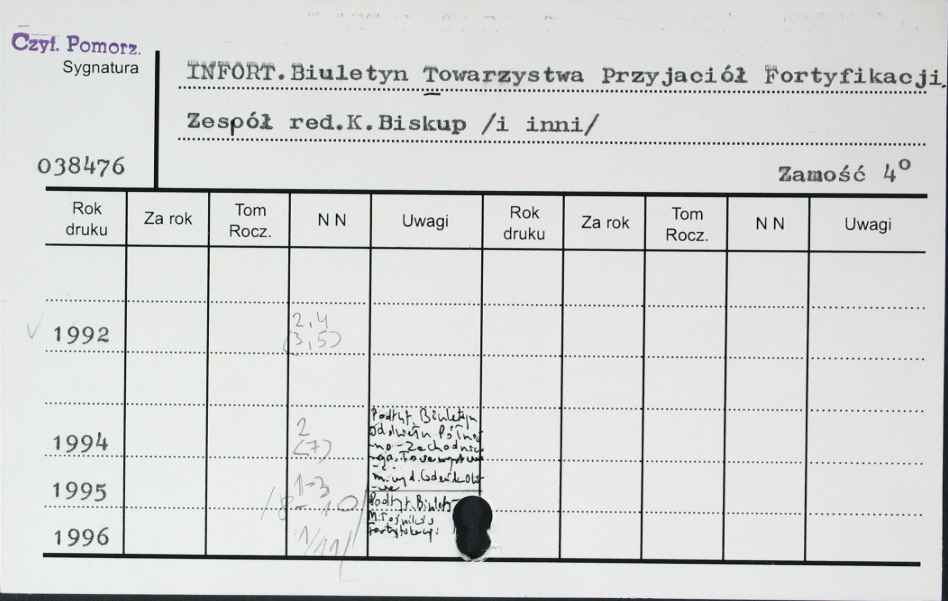 Czyt. Pomorz.
Sygnatura
INFORT. Biuletyn Towarzystwa Przyjaciół Fortyfikacji.
Zespół red.K.Biskup /i inni/
038476
Zamość 4º
Rok druku Za rok Tom Rocz. N N Uwagi Rok druku Za rok Tom Rocz. N N Uwagi
1992 2,4
(3,5)
Podtyt. Biuletyn
1994 2
(7)
1995 1-3
/8-10/
Podtyt. Biulet-
1996 1/11/